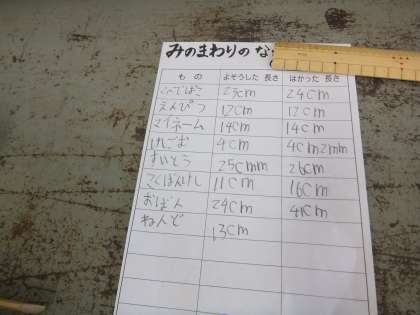 みのまわりの な
もの よそうした長さ はかった長さ
24cm
えんぴつ 12cm 12cm
マイネーム 14cm 14cm
けしごむ 4cm 4cm2mm
すいとう 25cmm 26cm
こくばんけし 11cm 16cm
おぼん 24cm 41cm
ねんど 13cm